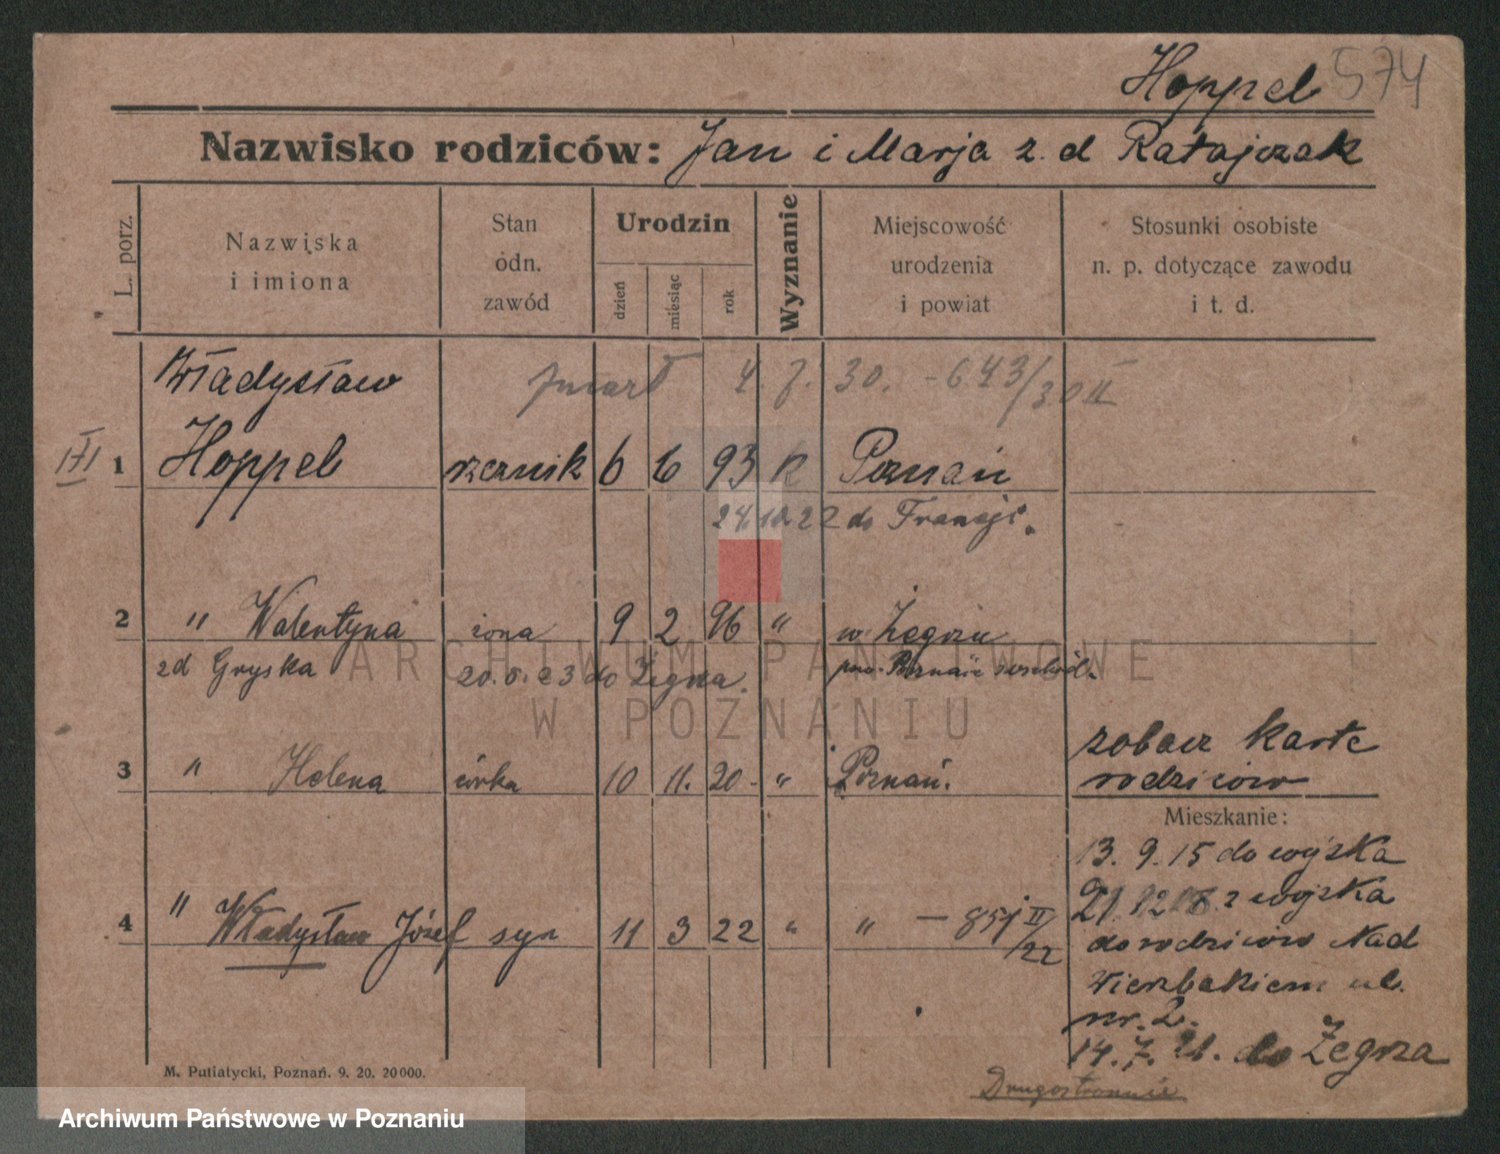 Hoppel 574
Nazwisko rodziców: Jan i Marja z. d Ratajczak
L. porz.
Nazwiska
i imiona
Stan
odn.
zawód
Urodzin
dzień
miesiąc
rok
Wyznanie
Miejscowość
urodzenia
i powiat
Stosunki osobiste
n. p. dotyczące zawodu
i t. d.
Władysław zmarł 4. 7. 30. - 643/30 II
1 Hoppel rzeźnik 6 6 93 k Poznań
24.10.22 do Francji.
2 " Walentyna żona 9 2 96 " w. Żegrzu
zd Gryska 20.6.23 do Żegrza. pow. Poznań wschód.
3 " Helena córka 10 11. 20 - " Poznań.
zobacz kartę
rodziców
Mieszkanie:
4 " Władysław Józef syn 11 3 22 " " - 851 II/22
13. 9. 15 do wojska
21.12.18 z wojska
do rodziców Nad
Wierzbakiem ul.
nr. 2.
14. 7. 21. do Żegrza
M. Putiatycki, Poznań. 9. 20. 20000.
Drugostronnie
ARCHIWUM PAŃSTWOWE
W POZNANIU
Archiwum Państwowe w Poznaniu